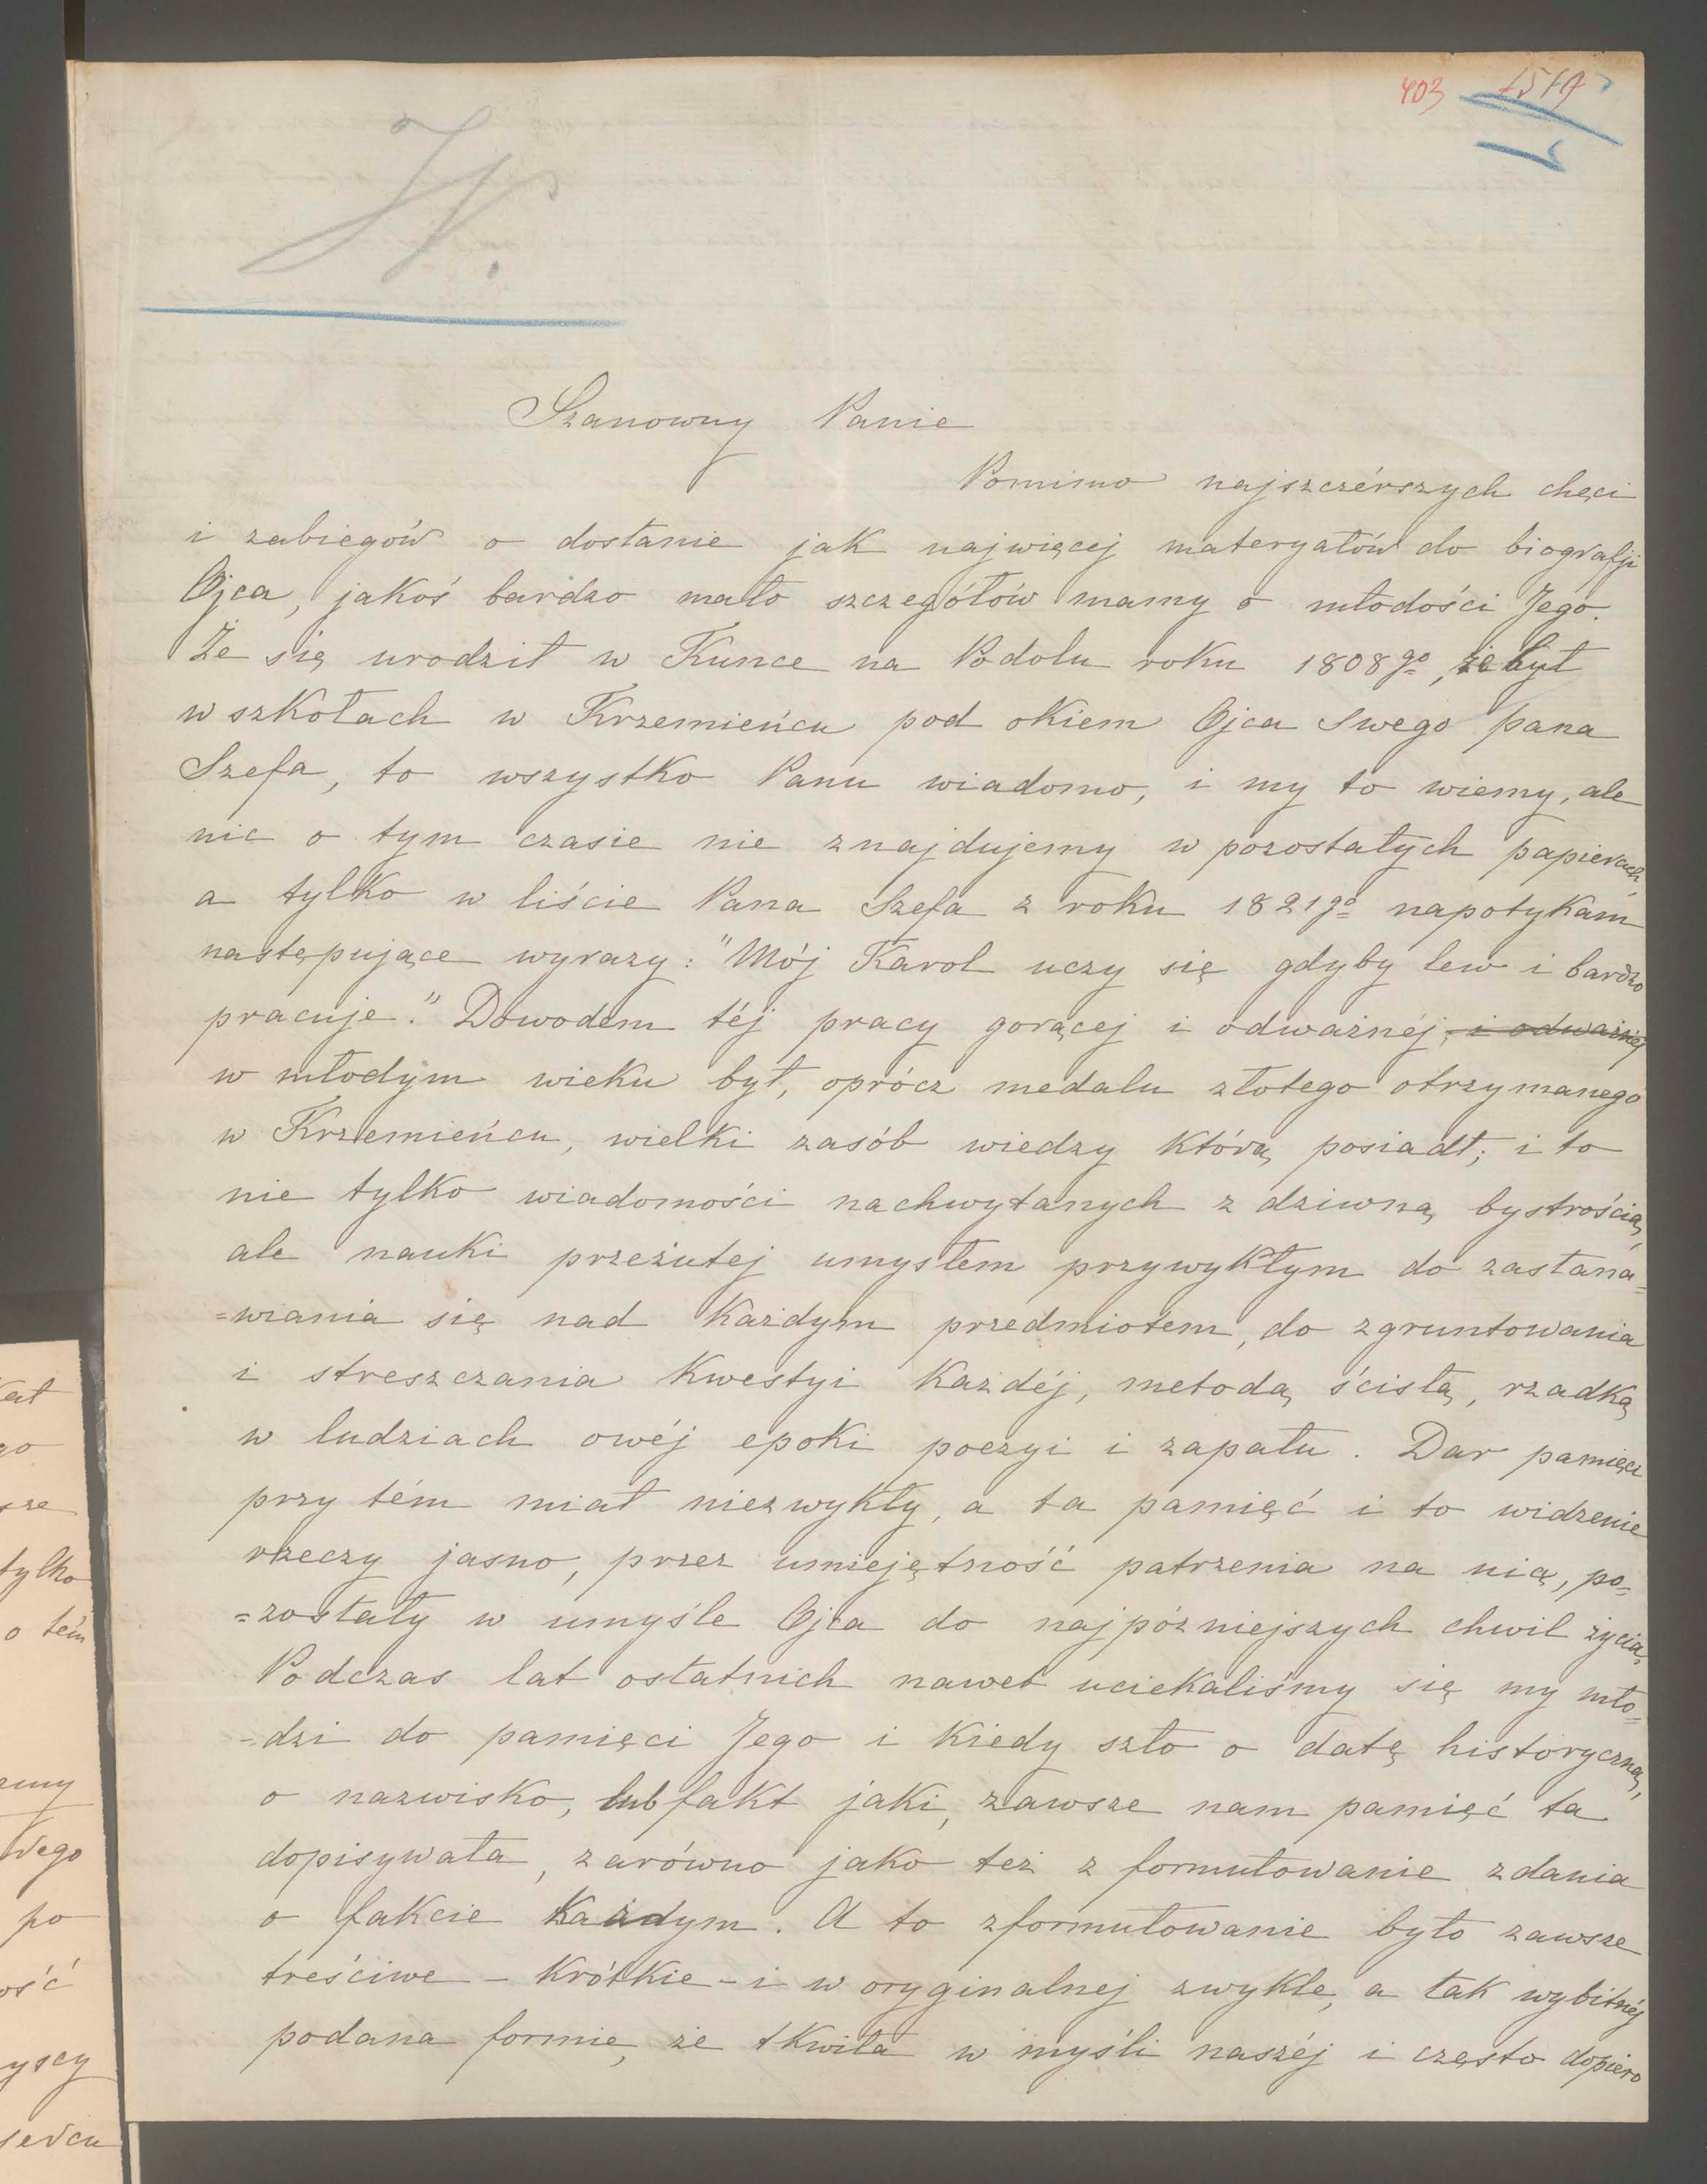 403
Szanowny Panie
Pomimo najszczérszych chęci
i zabiegów o dostanie jak najwięcej materyałów do biografji
Ojca, jakoś bardzo mało szczegółów mamy o młodości Jego.
Że się urodził w Kunce na Podolu roku 1808go, że był
w szkołach w Krzemieńcu pod okiem Ojca Swego pana
Szefa, to wszystko Panu wiadomo, i my to wiemy, ale
nic o tym czasie nie znajdujemy w pozostałych papierach,
a tylko w liście Pana Szefa z roku 1821go napotykam
następujące wyrazy: "Mój Karol uczy się gdyby lew i bardzo
pracuje." Dowodem téj pracy gorącej i odważnéj, i odważnéj
w młodym wieku był, oprócz medalu złotego otrzymanego
w Krzemieńcu, wielki zasób wiedzy którą posiadł; i to
nie tylko wiadomości nachwytanych z dziwną bystrością,
ale nauki przeżutej umysłem przywykłym do zastana=
=wiania się nad każdym przedmiotem, do zgruntowania
i streszczania kwestyi każdéj, metodą ścisłą, rzadką
w ludziach owéj epoki poezyi i zapału. Dar pamięci
przy tém miał niezwykły, a ta pamięć i to widzenie
rzeczy jasno, przez umiejętność patrzenia na nią, po=
=zostały w umyśle Ojca do najpózniejszych chwil życia.
Podczas lat ostatnich nawet uciekaliśmy się my mło=
-dzi do pamięci Jego i kiedy szło o datę historyczną,
o nazwisko, lub fakt jaki, zawsze nam pamięć ta
dopisywała, zarówno jako też z formułowanie zdania
o fakcie każdym. A to zformułowanie było zawsze
treściwe - krótkie - i w oryginalnej zwykle, a tak wybitnéj
podana formie, że tkwiła w myśli naszéj i często dopiero
tylko
o tém
po
ość